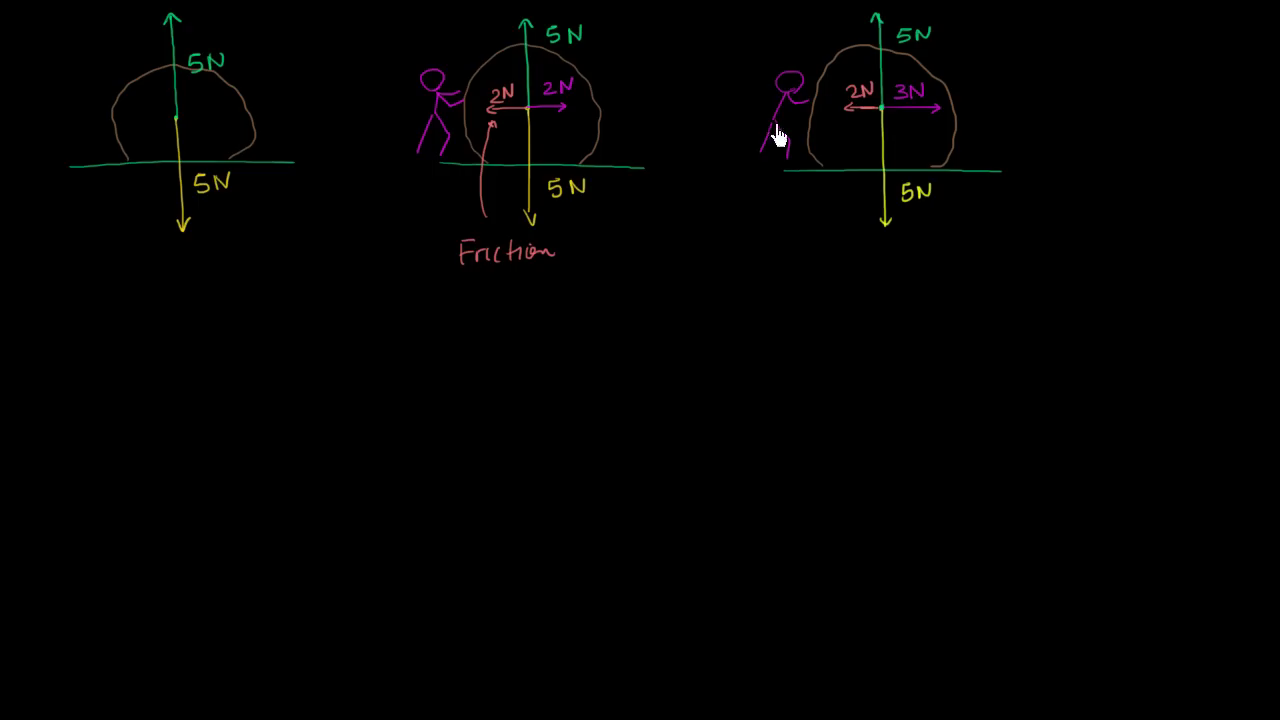 5N
5N
5N
2N
2N
5N
Friction
5N
2N
3N
5N